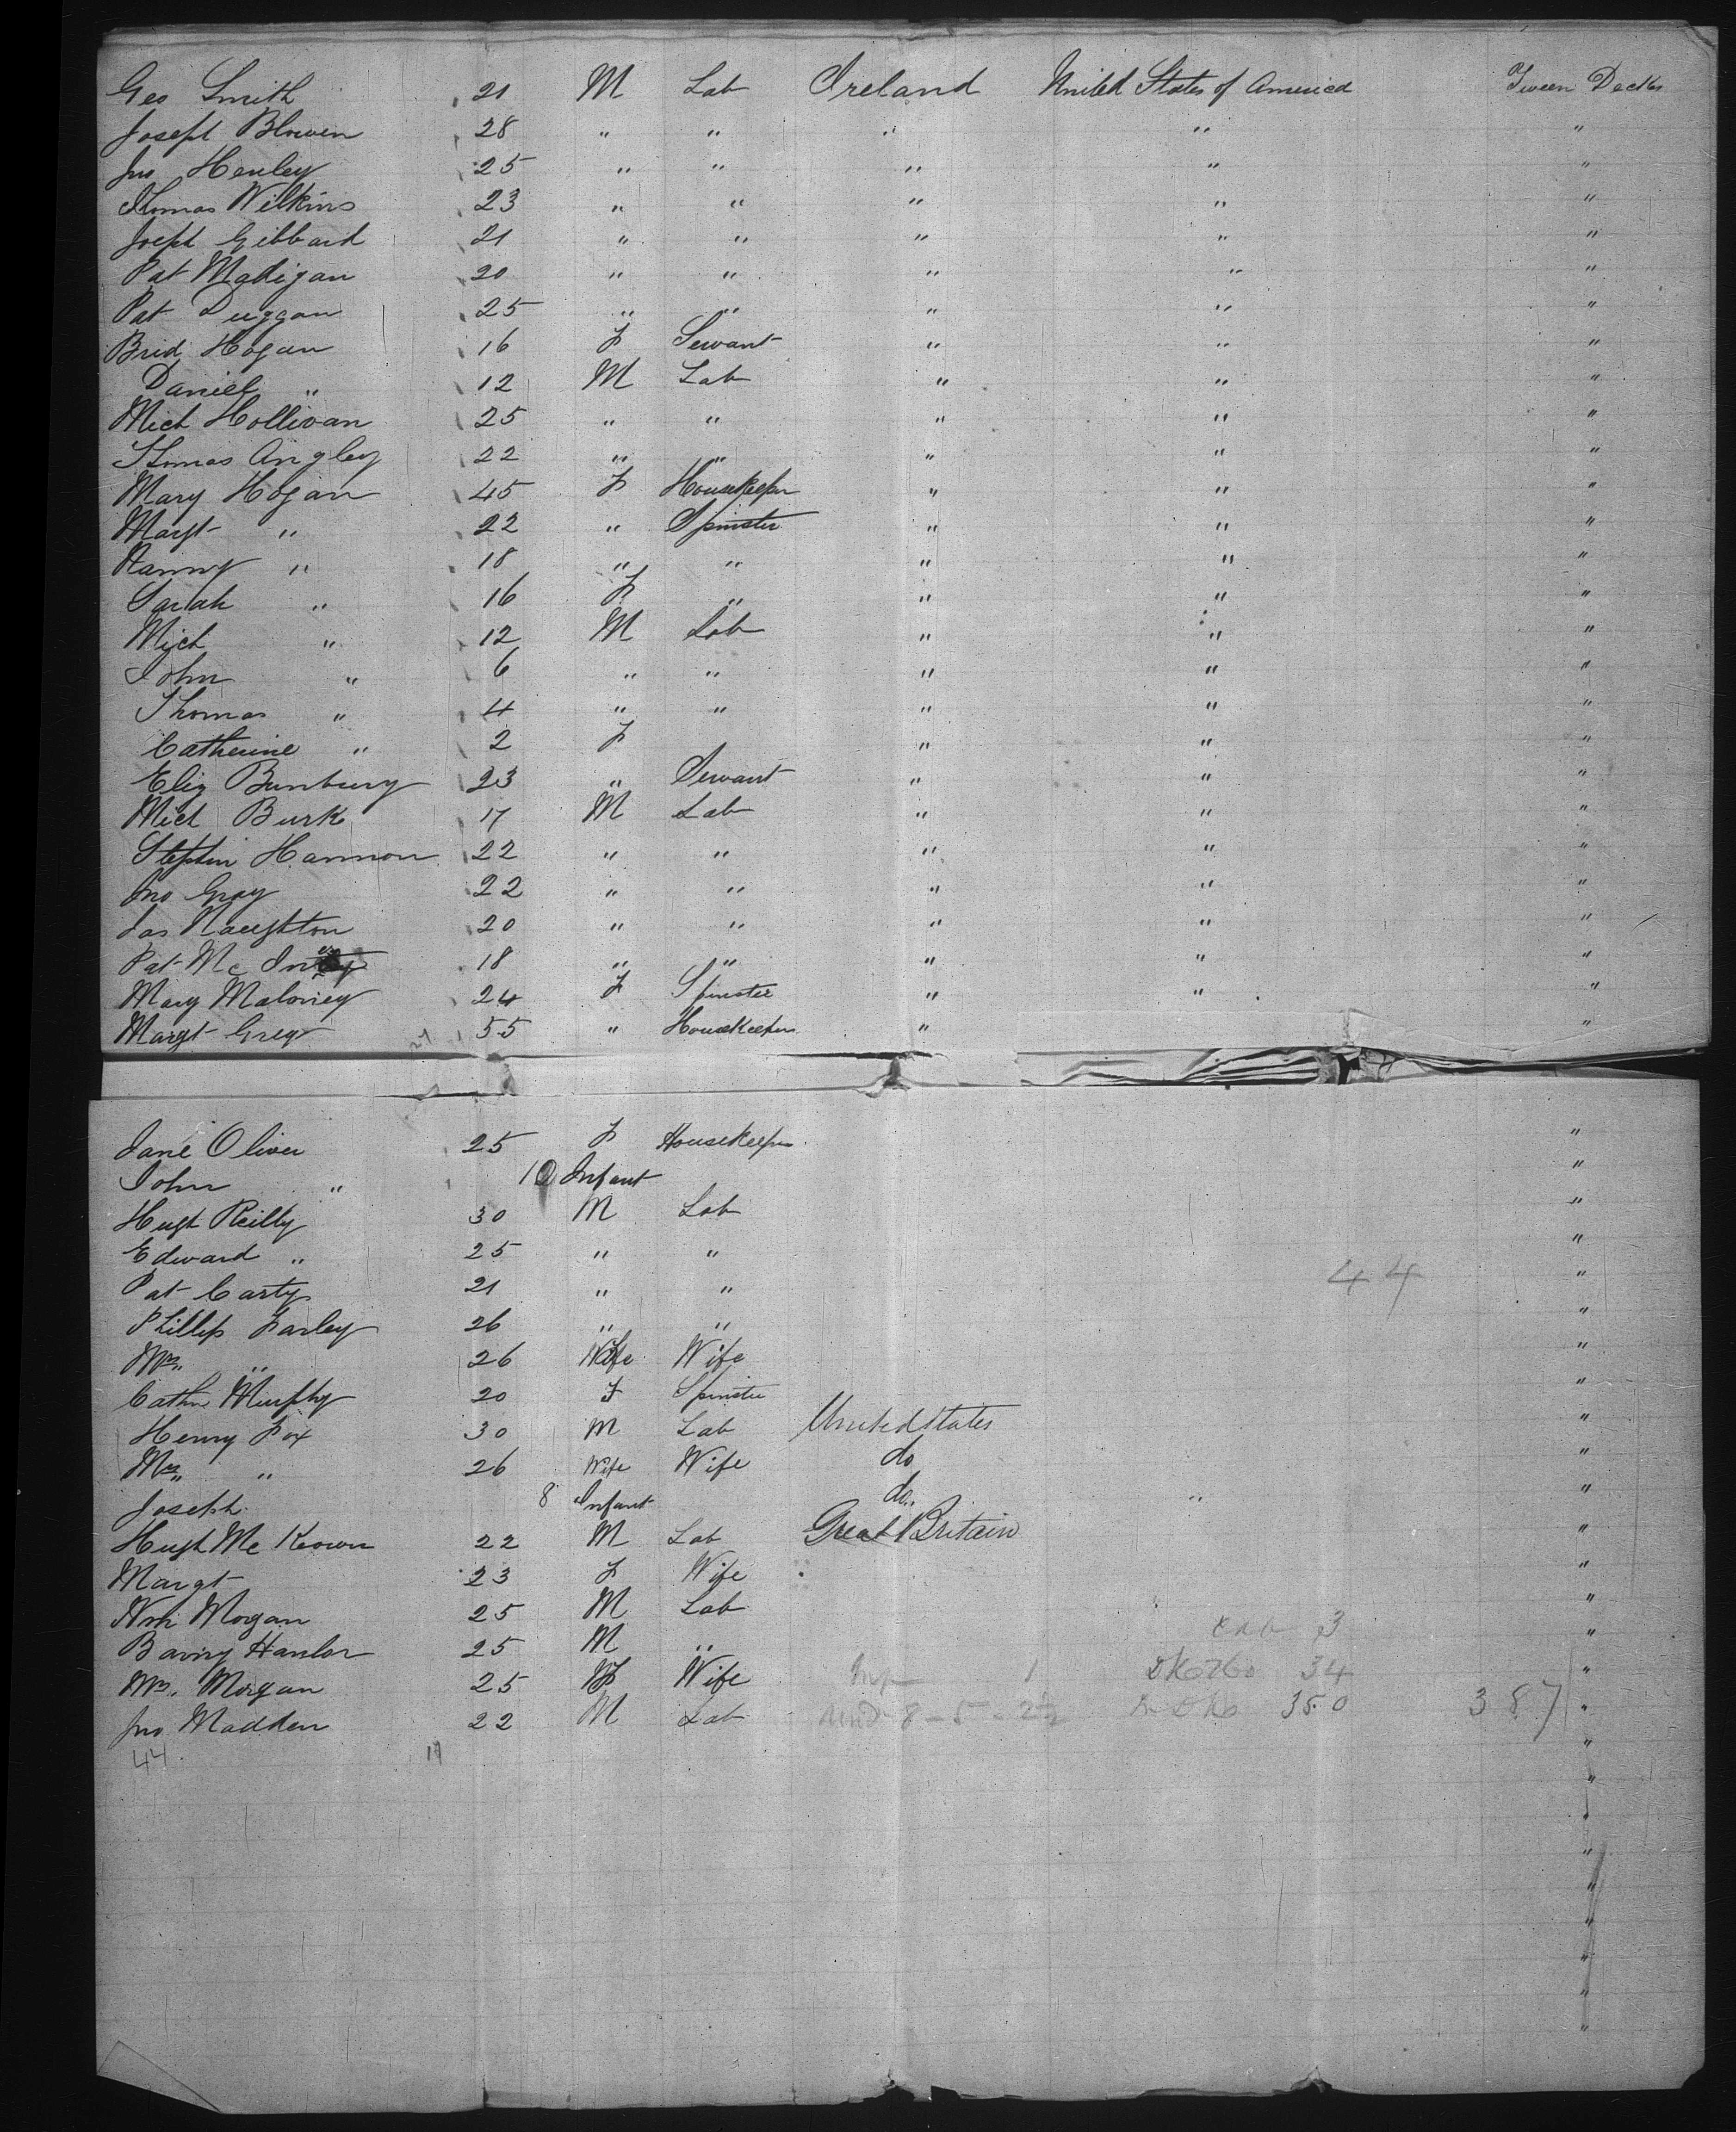 Geo Smith 21 M Lab Ireland United States of America Tween Decks
Joseph Blowen 28 " " " " "
Jno Henley 25 " " " " "
Thomas Wilkins 23 " " " " "
Joeph Gibbard 21 " " " " "
Pat Madigan 20 " " " " "
Pat Duggan 25 " " " " "
Brid Hogan 16 F Servant " " "
Daniel " 12 M Lab " " "
Mich Hollivan 25 " " " " "
Thomas Angley 22 " " " " "
Mary Hogan 45 F Housekeeper " " "
Margt " 22 " Spinster " " "
Hanny " 18 " " " " "
Sarah " 16 F " " " "
Mich " 12 M Lab " " "
John " 6 " " " " "
Thomas " 4 " " " " "
Catherine " 2 F " " "
Eliz Bunbury 23 " Servant " " "
Mich Burk 17 M Lab " " "
Stephen Hannon 22 " " " " "
Jno Gray 22 " " " " "
Jas Naughton 20 " " " " "
Pat Mc 18 " " " " "
Mary Maloney 24 F Spinster " " "
Margt Grey 55 " Housekeeper " "
27
Jane Oliver 25 F Housekeeper "
John " 10 Infant "
Hugh Reilly 30 M Lab "
Edward " 25 " " "
Pat Carty 21 " " 44 "
Phillip Farley 26 " " "
Mrs " 26 Wife Wife "
Cathn Murphy 20 F Spinster "
Henry Fox 30 M Lab United States "
Mrs " 26 Wife Wife do "
Joseph 8 Infant do " "
Hugh Mc Keown 22 M Lab Great Britain "
Margt 23 F Wife "
Wm Mogan 25 M Lab "
Barny Hanlon 25 M " 3 "
Mrs. Morgan 25 F Wife Inf 1 34 "
Jno Madden 22 M Lab 8-5-2 350 387 "
44 17 "
"
"
"
"
"
"
"
"